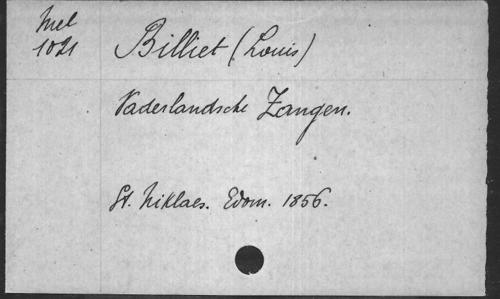 Mel
1021
Billiet (Louis)
Vaderlandsche Zangen.
St. Niklaes. Edom. 1856.